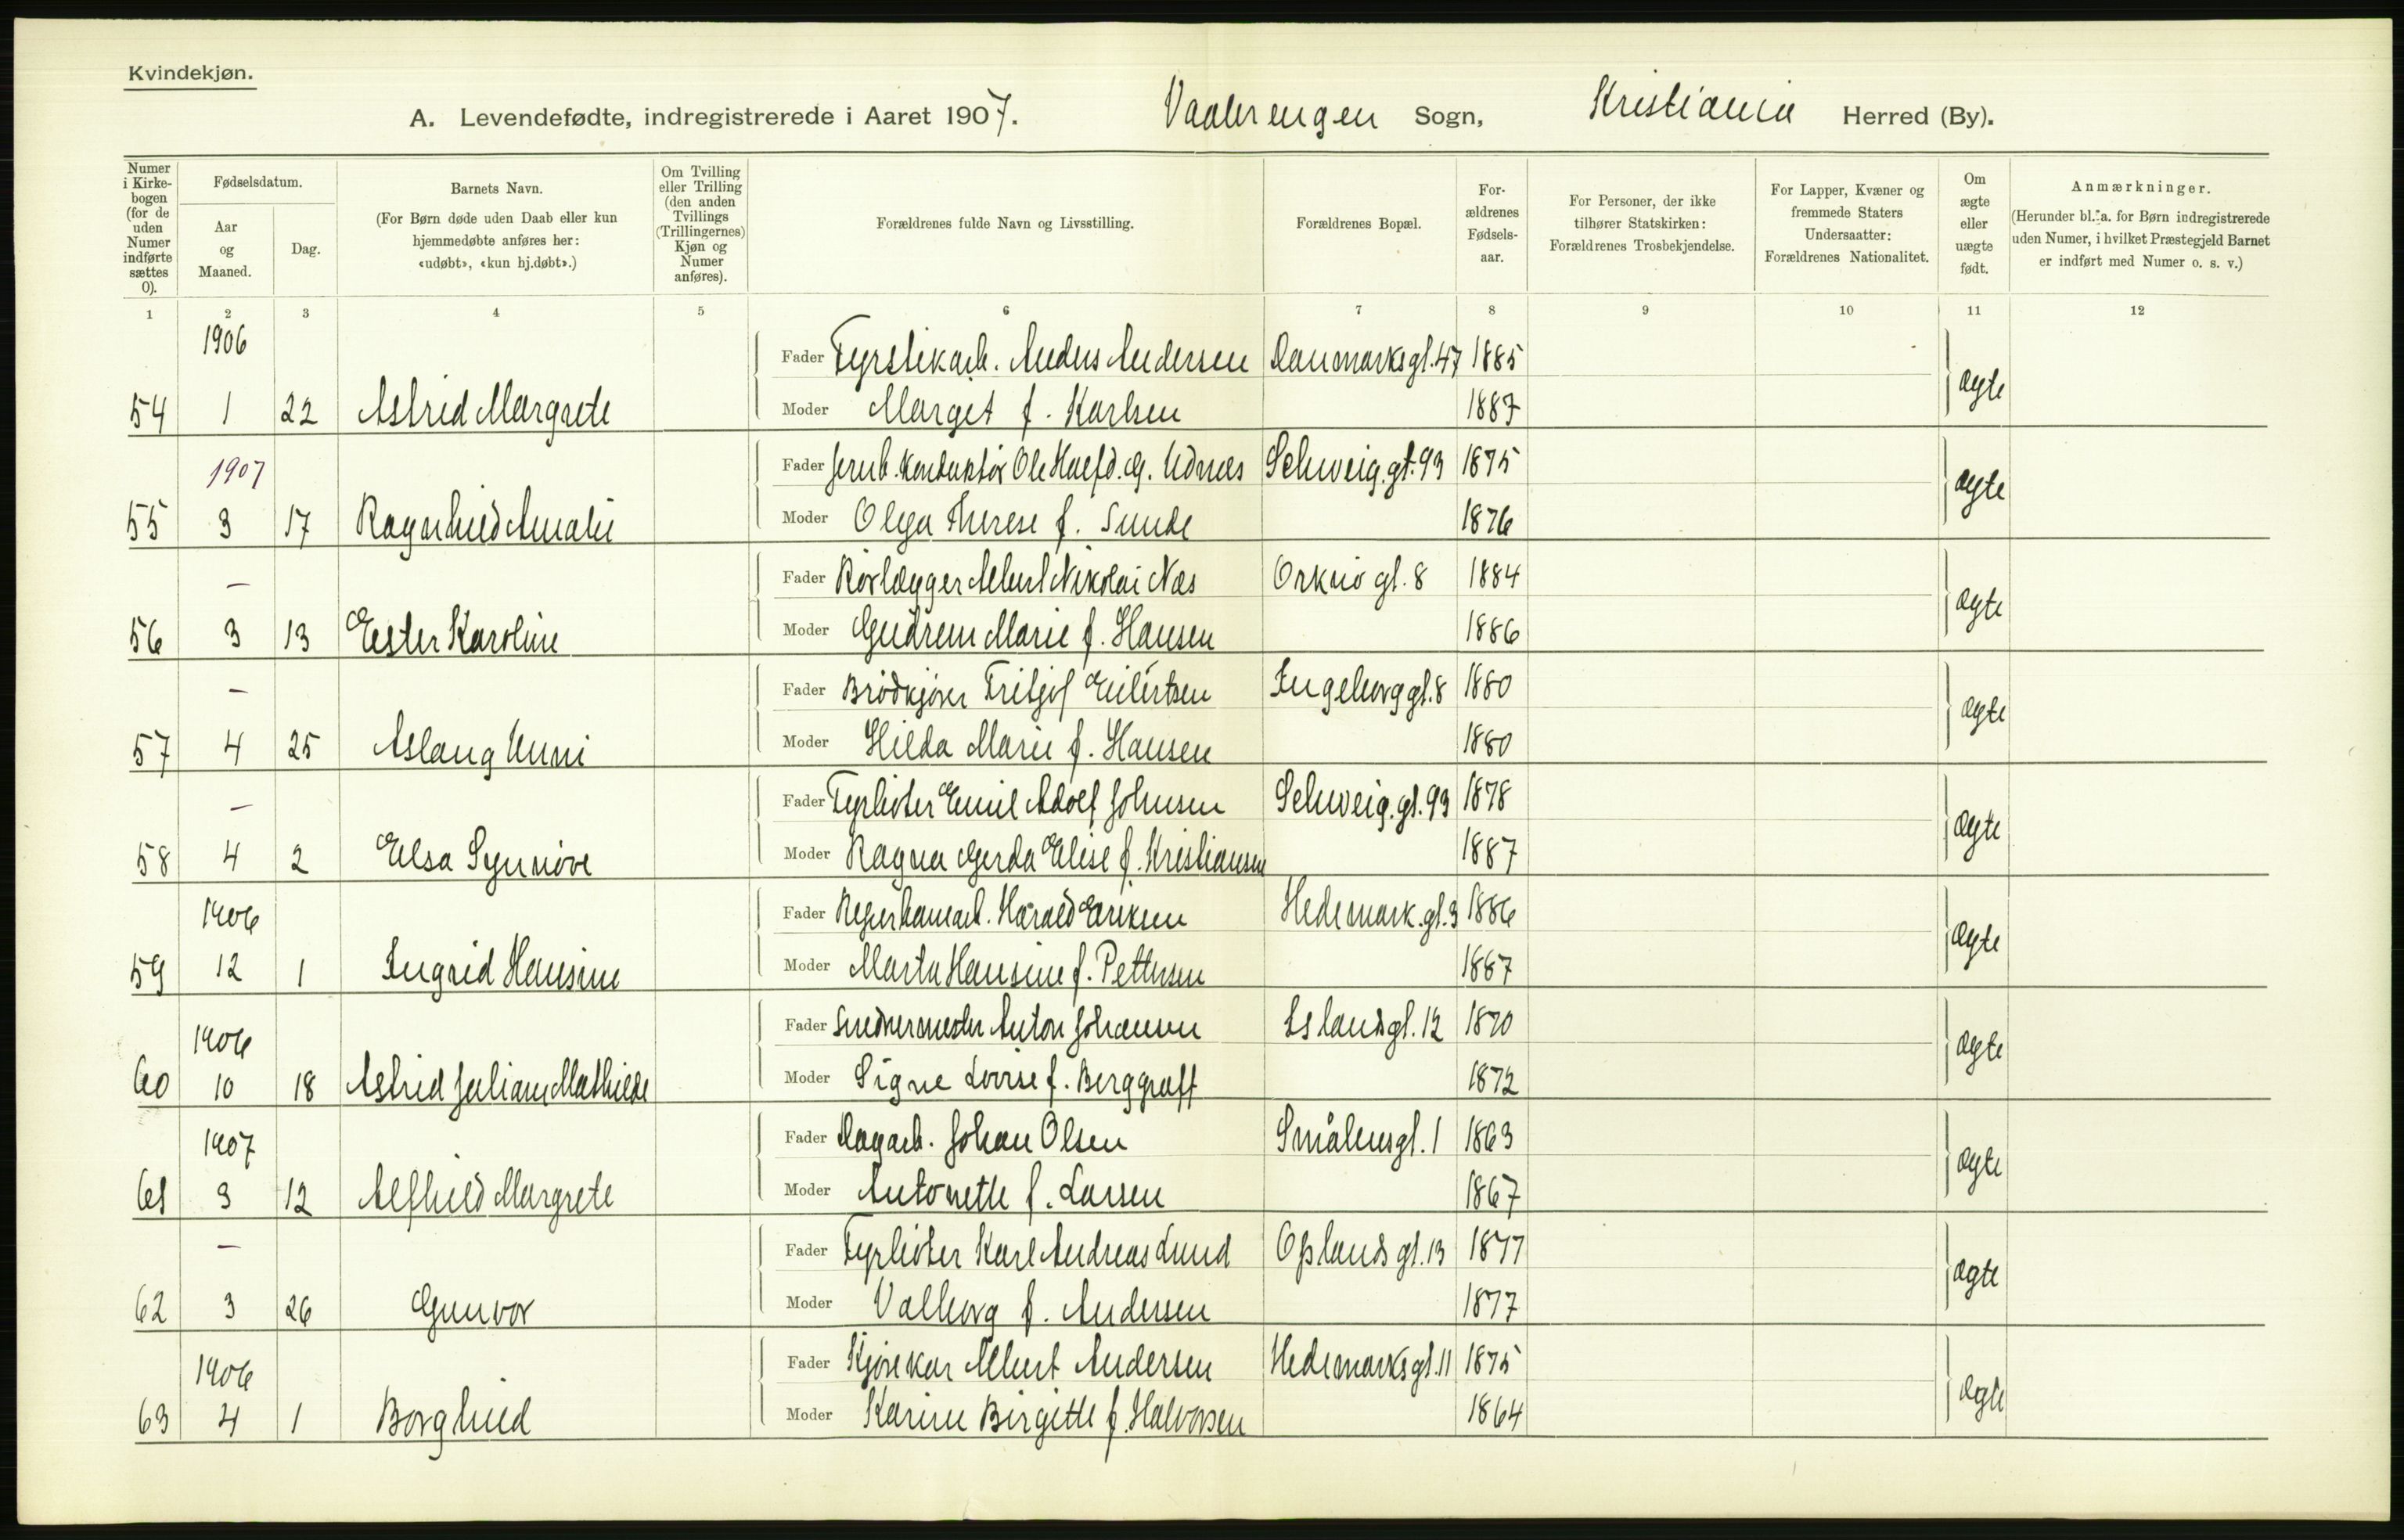 Kvindekjøn.
A. Levendefødte, indregistrerede i Aaret 1907. Vaalerengen Sogn, Kristiania Herred (By).
Numer i Kirkebogen (for de uden Numer indførte sættes 0).
Fødselsdatum.
Aar og Maaned.
Dag.
Barnets Navn.
(For Børn døde uden Daab eller kun hjemmedøbte anføres her: «udøbt», «kun hj.døbt».)
Om Tvilling eller Trilling (den anden Tvillings (Trillingernes) Kjøn og Numer anføres).
Forældrenes fulde Navn og Livsstilling.
Forældrenes Bopæl.
Forældrenes Fødselsaar.
For Personer, der ikke tilhører Statskirken: Forældrenes Trosbekjendelse.
For Lapper, Kvæner og fremmede Staters Undersaatter: Forældrenes Nationalitet.
Om ægte eller uægte født.
Anmærkninger.
(Herunder bl. a. for Børn indregistrerede uden Numer, i hvilket Præstegjeld Barnet er indført med Numer o. s. v.)
1 2 3 4 5 6 7 8 9 10 11 12
1906 Fader Fyrstikarb. Anders Andersen Danmarksgt. 47 1885
54 1 22 Astrid Margrete Moder Marget f. Karlsen 1887 ægte
1907 Fader Jernb. Konduktør Ole Udnæs Schweig. gt. 93 1875
55 3 17 Ragnhild Amalie Moder Olga Therese f. Sunde 1876 ægte
— Fader Rørlægger Albert Nikolai Næs Orknø gt. 8 1884
56 3 13 Ester Karoline Moder Gudrun Marie f. Hansen 1886 ægte
— Fader Brødkjører Fritjof Eilertsen Ingeborg gt. 8 1880
57 4 25 Aslaug Unni Moder Hilda Marie f. Hansen 1880 ægte
— Fader Fyrbøter Emil Adolf Johnsen Schweig. gt. 93 1878
58 4 2 Elsa Synnøve Moder Ragna Gerda Elise f. Kristiansen 1887 ægte
1906 Fader Reperbanearb. Harald Eriksen Hedemark. gt. 3 1886
59 12 1 Ingrid Hansine Moder Marta Hansine f. Pettersen 1887 ægte
1906 Fader Snedkermester Anton Johansen Islandsgt. 12 1870
60 10 18 Astrid Juliane Mathilde Moder Signe Lovise f. Berggraff 1872 ægte
1907 Fader Dagarb. Johan Olsen Smålensgt. 1 1863
61 3 12 Alfhild Margrete Moder Antonette f. Larsen 1867 ægte
— Fader Fyrbøter Karl Andreas Lund Oplands gt. 13 1877
62 3 26 Gunvor Moder Valborg f. Andersen 1877 ægte
1906 Fader Kjørekar Albert Andersen Hedemarksgt. 11 1875
63 4 1 Borghild Moder Karine Birgitte f. Halvorsen 1864 ægte